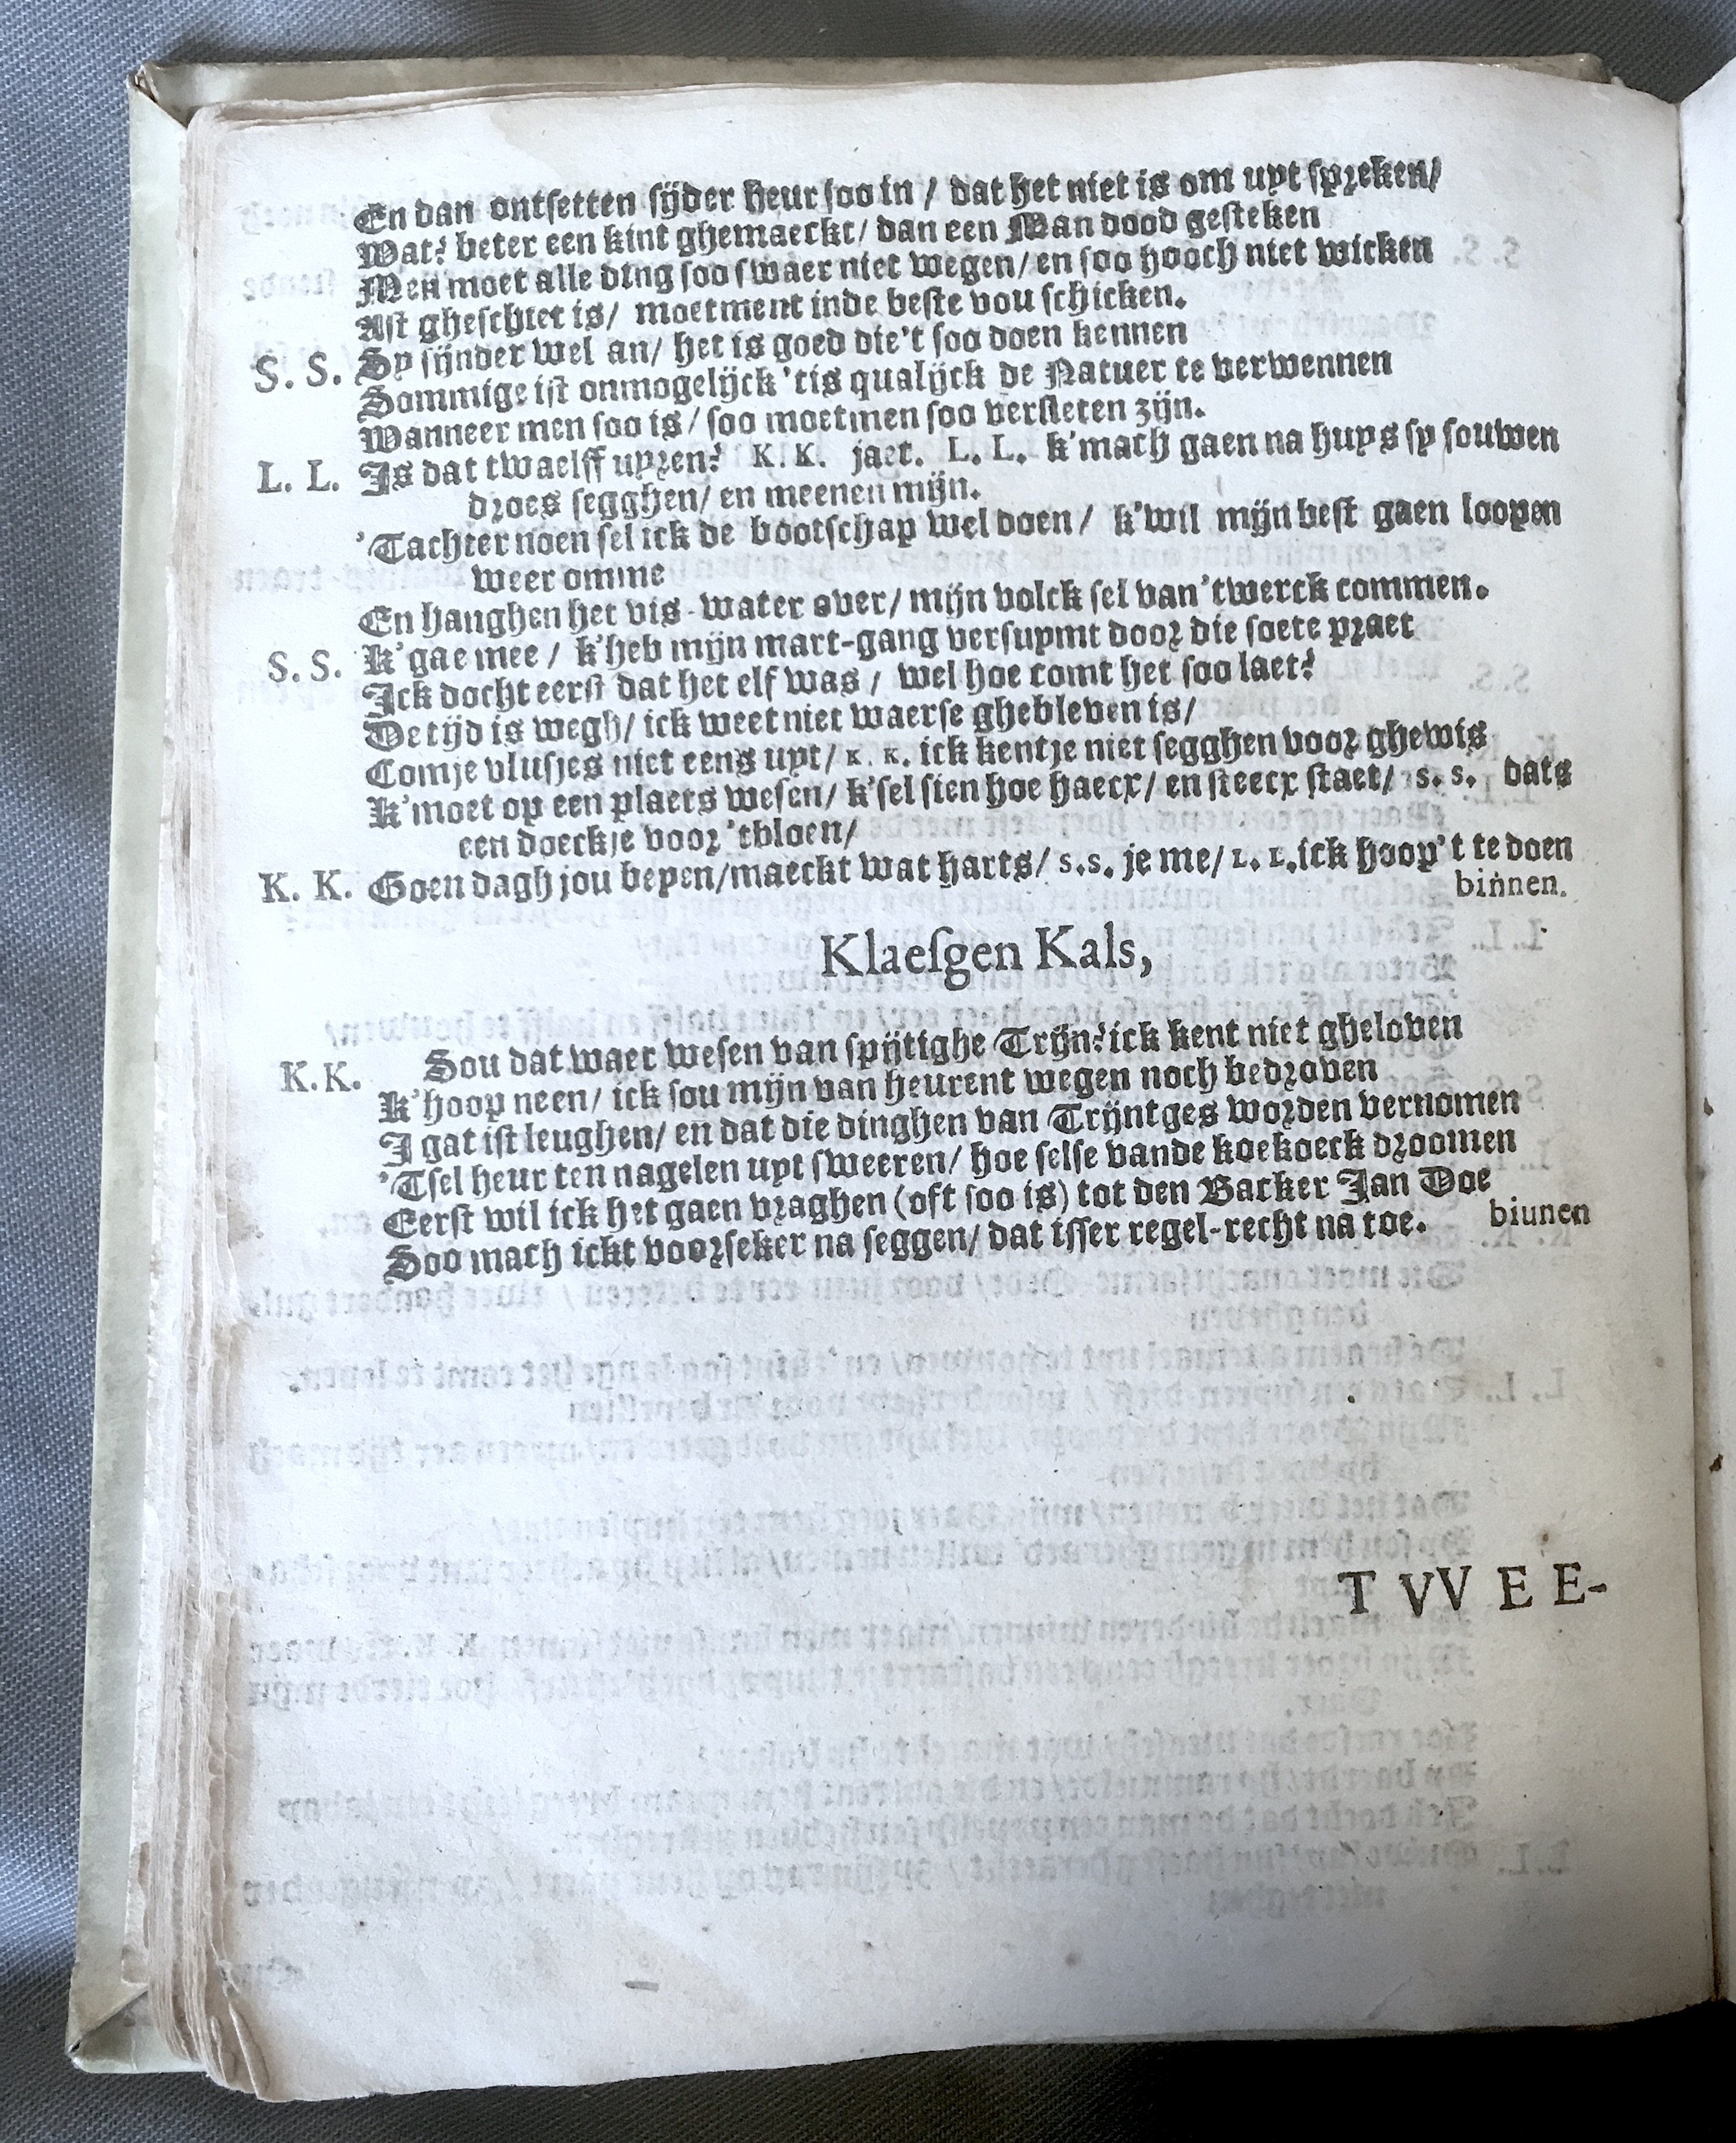 En dan ontsetten sijder heur soo in / dat het niet is om uyt spreken/
Wat? beter een kint ghemaeckt/ dan een Man dood gesteken
Men moet alle ding soo swaer niet wegen/ en soo hooch niet wicken
Ast gheschiet is/ moetment inde beste vou schicken.
S. S. Sy sijnder wel an/ het is goed die't soo doen kennen
Sommige ist onmogelijck 'tis qualijck de Natuer te verwennen
Wanneer men soo is/ soo moetmen soo versleten zijn.
L. L. Is dat twaelff uyren? K. K. jaet. L. L. k'mach gaen na huys sy souwen
droes segghen/ en meenen mijn.
'Tachter noen sel ick de bootschap wel doen / k'wil mijn best gaen loopen
weer omme
En hanghen het vis-water over/ mijn volck sel van'twerck commen.
S. S. K'gae mee / k'heb mijn mart-gang versuymt door die soete praet
Ick docht eerst dat het elf was / wel hoe comt het soo laet?
De tijd is wegh/ ick weet niet waerse ghebleven is/
Comje vlusjes niet eens uyt/ K. K. ick kentje niet segghen voor ghewis
K'moet op een plaets wesen/ k'sel sien hoe haecx/ en steecx staet/ S. S. dats
een doeckje voor 'tbloen/
K. K. Goen dagh jou beyen/maeckt wat harts/ S. S. je me/ L. L. ick hoop't te doen
binnen.
Klaesgen Kals,
K. K. Sou dat waer wesen van spijtighe Trijn? ick kent niet gheloven
K'hoop neen/ ick sou mijn van heurent wegen noch bedroven
I gat ist leughen/ en dat die dinghen van Trijntges worden vernomen
'Tsel heur ten nagelen uyt sweeren/ hoe selse vande koekoeck droomen
Eerst wil ick het gaen vraghen (oft soo is) tot den Backer Jan Doe
Soo mach ickt voorseker na seggen/ dat isser regel-recht na toe. biunen
TVVEE-